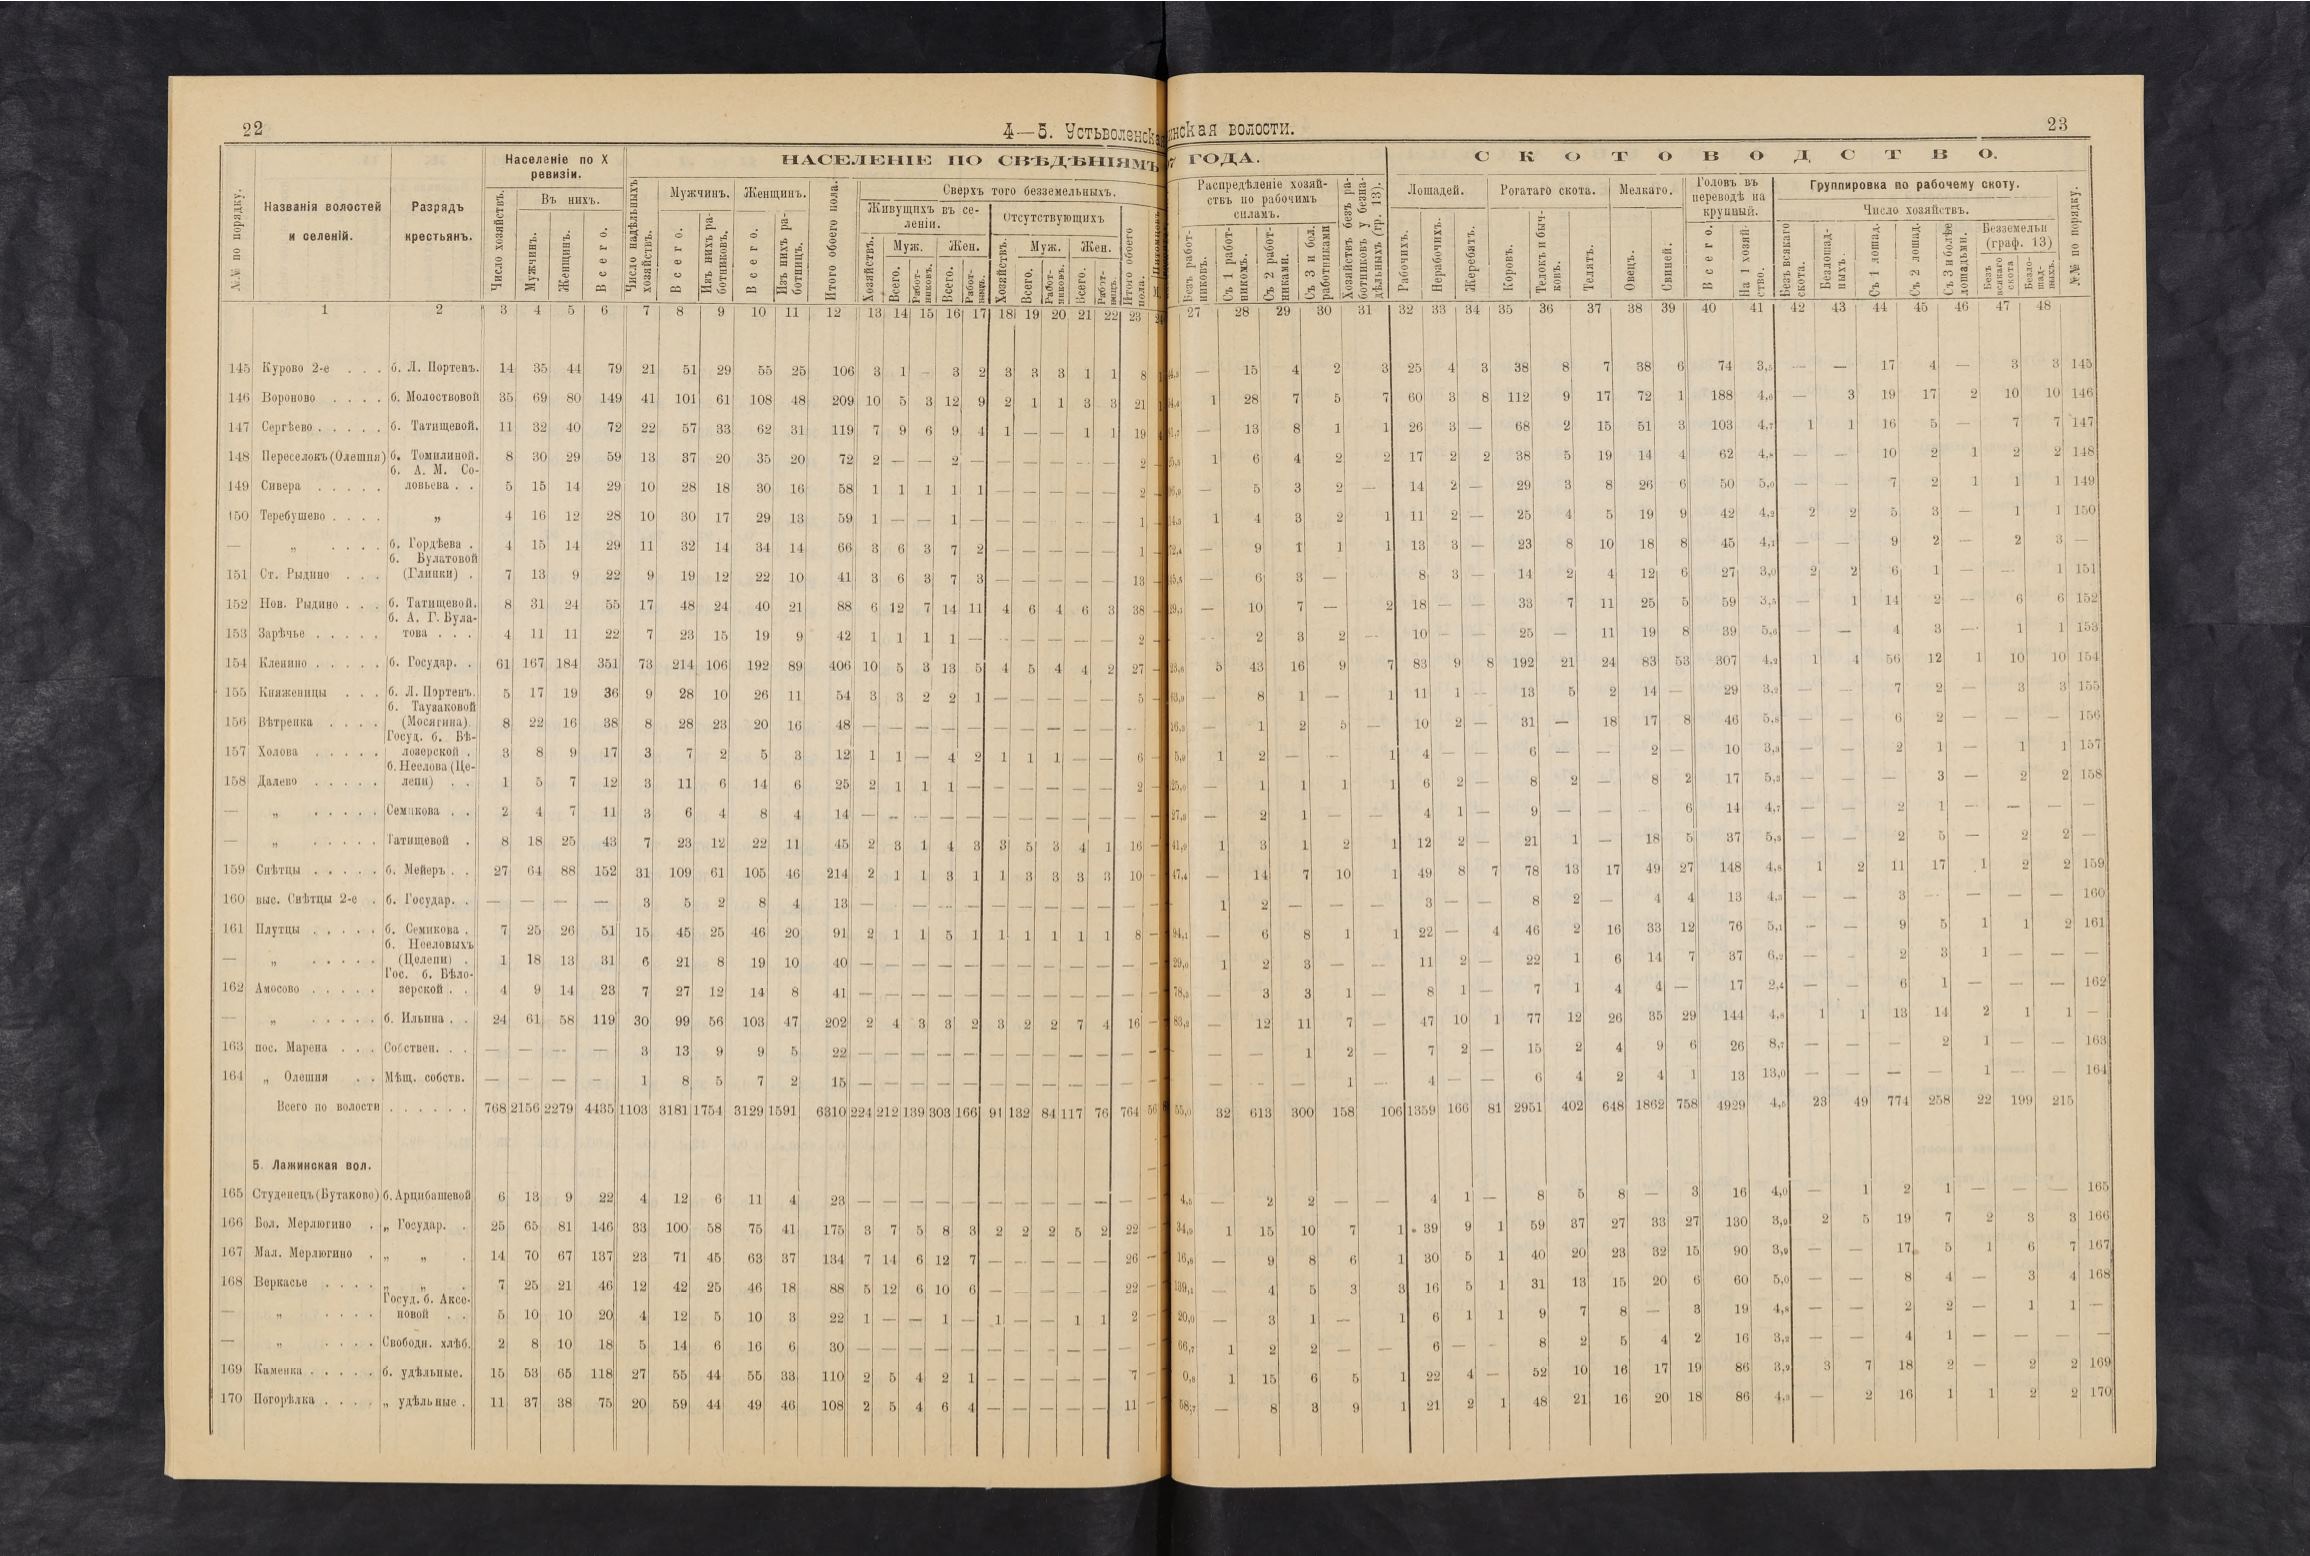 22
4—5. Устьволенска
нская волости.
23
№№ по порядку.
Названія волостей и селеній.
Разрядъ крестьянъ.
Населеніе по X ревизіи.
Число хозяйствъ.
Въ нихъ.
Мужчинъ.
Женщинъ.
Всего.
НАСЕЛЕНІЕ ПО СВѢДѢНІЯМЪ
7 ГОДА.
Число надѣльныхъ хозяйствъ.
Мужчинъ.
Всего.
Изъ нихъ работниковъ.
Женщинъ.
Всего.
Изъ нихъ работницъ.
Итого обоего пола.
Сверхъ того безземельныхъ.
Живущихъ въ селеніи.
Отсутствующихъ
Хозяйствъ.
Муж.
Жен.
Всего.
Работниковъ.
Всего.
Работницъ.
Хозяйствъ.
Муж.
Жен.
Всего.
Работниковъ.
Всего.
Работницъ.
Итого обоего пола.
Распредѣленіе хозяйствъ по рабочимъ силамъ.
Безъ работниковъ.
Съ 1 работникомъ.
Съ 2 работниками.
Съ 3 и бол. работниками
Хозяйствъ безъ работниковъ у безнадѣльныхъ (гр. 13).
СКОТОВОДСТВО.
Лошадей.
Рабочихъ.
Нерабочихъ.
Жеребятъ.
Рогатаго скота.
Коровъ.
Телокъ и бычковъ.
Телятъ.
Мелкаго.
Овецъ.
Свиней.
Головъ въ переводѣ на крупный.
Всего.
На 1 хозяйство.
Группировка по рабочему скоту.
Число хозяйствъ.
Безъ всякаго скота.
Безлошадныхъ.
Съ 1 лошад.
Съ 2 лошад.
Съ 3 и болѣе лошадьми.
Безземельн (граф. 13)
Безъ всякаго скота
Безлошадныхъ.
№№ по порядку.
1 2 3 4 5 6 7 8 9 10 11 12 13 14 15 16 17 18 19 20 21 22 23 27 28 29 30 31 32 33 34 35 36 37 38 39 40 41 42 43 44 45 46 47 48
145 Курово 2-е . . . б. Л. Портенъ. 14 35 44 79 21 51 29 55 25 106 3 1 – 3 2 3 3 3 1 1 8 — 15 4 2 3 25 4 3 38 8 7 38 6 74 3,5 — — 17 4 — 3 3 145
146 Вороново . . . . б. Молоствовой 35 69 80 149 41 101 61 108 48 209 10 5 3 12 9 2 1 1 3 3 21 1 28 7 5 7 60 3 8 112 9 17 72 1 188 4,6 — 3 19 17 2 10 10 146
147 Сергѣево . . . . . б. Татищевой. 11 32 40 72 22 57 33 62 31 119 7 9 6 9 4 1 — — 1 1 19 — 13 8 1 1 26 3 — 68 2 15 51 3 103 4,7 1 1 16 5 — 7 7 147
148 Переселокъ (Олешня) б. Томилиной. 8 30 29 59 13 37 20 35 20 72 2 — — 2 — — — — — — 2 1 6 4 2 2 17 2 2 38 5 19 14 4 62 4,8 — — 10 2 1 2 2 148
149 Сивера . . . . . б. А. М. Соловьева . . 5 15 14 29 10 28 18 30 16 58 1 1 1 1 1 — — — — — 2 — 5 3 2 — 14 2 — 29 3 8 26 6 50 5,0 — — 7 2 1 1 1 149
150 Теребушево . . . . „ 4 16 12 28 10 30 17 29 13 59 1 — — 1 — — — — — — 1 1 4 3 2 1 11 2 — 25 4 5 19 9 42 4,2 2 2 5 3 — 1 1 150
— „ . . . . б. Гордѣева . 4 15 14 29 11 32 14 34 14 66 3 6 3 7 2 — — — — — 1 — 9 1 1 1 13 3 — 23 8 10 18 8 45 4,1 9 2 — 2 3 —
151 Ст. Рыдино . . . б. Булатовой (Глинки) . 7 13 9 22 9 19 12 22 10 41 3 6 3 7 3 — — — — — 13 — 6 3 — 8 3 — 14 2 4 12 6 27 3,0 2 2 6 1 — — 1 151
152 Нов. Рыдино . . . б. Татищевой. 8 31 24 55 17 48 24 40 21 88 6 12 7 14 11 4 6 4 6 3 38 — 10 7 — 2 18 — — 33 7 11 25 5 59 3,5 — 1 14 2 — 6 6 152
153 Зарѣчье . . . . . б. А. Г. Булатова . . . 4 11 11 22 7 23 15 19 9 42 1 1 1 1 — — — — — — 2 — 2 3 2 — 10 — — 25 — 11 19 8 39 5,6 — — 4 3 — 1 1 153
154 Кленино . . . . . б. Государ. . 61 167 184 351 73 214 106 192 89 406 10 5 3 13 5 4 5 4 4 2 27 5 43 16 9 7 83 9 8 192 21 24 83 53 307 4,2 1 4 56 12 1 10 10 154
155 Княженицы . . . б. Л. Портенъ. 5 17 19 36 9 28 10 26 11 54 3 3 2 2 1 — — — — — 5 — 8 1 — 1 11 1 — 13 5 2 14 — 29 3,2 — — 7 2 — 3 3 155
156 Вѣтренка . . . . б. Таузаковой (Мосягина). 8 22 16 38 8 28 23 20 16 48 — — — — — — — — — — — — 1 2 5 — 10 2 — 31 — 18 17 8 46 5,8 — — 6 2 — — — 156
157 Холова . . . . . Госуд. б. Бѣлозерской . 3 8 9 17 3 7 2 5 3 12 1 1 — 4 2 1 1 1 — — 6 1 2 — — 1 4 — — 6 — — 2 — 10 3,3 — — 2 1 — 1 1 157
158 Далево . . . . . б. Неелова (Целепи) . . 1 5 7 12 3 11 6 14 6 25 2 1 1 1 — — — — — — 2 — 1 1 1 1 6 2 — 8 2 — 8 2 17 5,3 — — — 3 — 2 2 158
— „ . . . . . Семикова . . 2 4 7 11 3 6 4 8 4 14 — — — — — — — — — — — — 2 1 — 4 1 — 9 — — — 6 14 4,7 — — 2 1 — — — —
— „ . . . . . Татищевой . 8 18 25 43 7 23 12 22 11 45 2 3 1 4 3 3 5 3 4 1 16 1 3 1 2 1 12 2 — 21 1 — 18 5 37 5,3 — — 2 5 — 2 2 —
159 Снѣтцы . . . . . б. Мейеръ . . 27 64 88 152 31 109 61 105 46 214 2 1 1 3 1 1 3 3 3 3 10 — 14 7 10 1 49 8 7 78 13 17 49 27 148 4,8 1 2 11 17 1 2 2 159
160 выс. Снѣтцы 2-е . б. Государ. . — — — — 3 5 2 8 4 13 — — — — — — — — — — — 1 2 — — — 3 — — 8 2 — 4 4 13 4,3 — — 3 — — — — 160
161 Плутцы . . . . . б. Семикова . 7 25 26 51 15 45 25 46 20 91 2 1 1 5 1 1 1 1 1 1 8 — 6 8 1 1 22 — 4 46 2 16 33 12 76 5,1 — — 9 5 1 1 2 161
— „ . . . . . б. Нееловыхъ (Целепи) . 1 18 13 31 6 21 8 19 10 40 — — — — — — — — — — — 1 2 3 — — 11 2 — 22 1 6 14 7 37 6,2 — — 2 3 1 — — —
162 Амосово . . . . . Гос. б. Бѣлозерской . . 4 9 14 23 7 27 12 14 8 41 — — — — — — — — — — — — 3 3 1 — 8 1 — 7 1 4 4 — 17 2,4 — — 6 1 — — — 162
— „ . . . . . б. Ильина . . 24 61 58 119 30 99 56 103 47 202 2 4 3 3 2 3 2 2 7 4 16 — 12 11 7 — 47 10 1 77 12 26 35 29 144 4,8 1 1 13 14 2 1 1 —
163 пос. Марена . . . Собствен. . . — — — — 3 13 9 9 5 22 — — — — — — — — — — — — — 1 2 — 7 2 — 15 2 4 9 6 26 8,7 — — — 2 1 — — 163
164 „ Олешня . . Мѣщ. собств. — — — — 1 8 5 7 2 15 — — — — — — — — — — — — — — 1 — 4 — — 6 4 2 4 1 13 13,0 — — — — 1 — — 164
Всего по волости . . . . . . 768 2156 2279 4435 1103 3181 1754 3129 1591 6310 224 212 139 303 166 91 132 84 117 76 764 56 55,0 32 613 300 158 106 1359 166 81 2951 402 648 1862 758 4929 4,5 23 49 774 258 22 199 215
5. Лажинская вол.
165 Студенецъ (Бутаково) б. Арцибашевой 6 13 9 22 4 12 6 11 4 23 — — — — — — — — — — — 4,5 — 2 2 — — 4 1 — 8 5 8 — 3 16 4,0 — 1 2 1 — — — 165
166 Бол. Мерлюгино . „ Государ. . 25 65 81 146 33 100 58 75 41 175 3 7 5 8 3 2 2 2 5 2 22 — 34,9 1 15 10 7 1 39 9 1 59 37 27 33 27 130 3,9 2 5 19 7 2 3 3 166
167 Мал. Мерлюгино . „ „ . 14 70 67 137 23 71 45 63 37 134 7 14 6 12 7 — — — — — 26 — 16,8 — 9 8 6 1 30 5 1 40 20 23 32 15 90 3,9 — — 17 5 1 6 7 167
168 Веркасье . . . . „ „ . 7 25 21 46 12 42 25 46 18 88 5 12 6 10 6 — — — — — 22 — 139,1 — 4 5 3 3 16 5 1 31 13 15 20 6 60 5,0 — — 8 4 — 3 4 168
— „ . . . . Госуд. б. Аксеновой . . 5 10 10 20 4 12 5 10 3 22 1 — — 1 — 1 — — 1 1 2 — 20,0 — 3 1 — 1 6 1 1 9 7 8 — 3 19 4,8 — — 2 2 — 1 1 —
— „ . . . . Свободн. хлѣб. 2 8 10 18 5 14 6 16 6 30 — — — — — — — — — — — 66,7 1 2 2 — — 6 — — 8 2 5 4 2 16 3,2 — — 4 1 — — — —
169 Каменка . . . . . б. удѣльные. 15 53 65 118 27 55 44 55 33 110 2 5 4 2 1 — — — — — 7 — 0,8 1 15 6 5 1 22 4 — 52 10 16 17 19 86 3,2 3 7 18 2 — 2 2 169
170 Погорѣлка . . . . „ удѣльные . 11 37 38 75 20 59 44 49 46 108 2 5 4 6 4 — — — — — 11 — 58,7 — 8 3 9 1 21 2 1 48 21 16 20 18 86 4,3 — 2 16 1 1 2 2 170